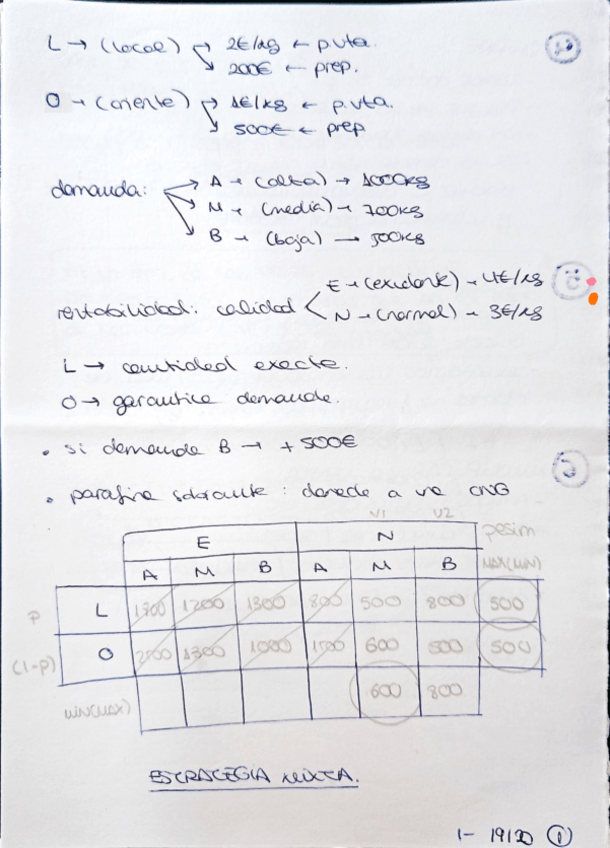 L → (local) → 2€/kg ← p.vta.
→ 200€ ← prep.
O → (oriente) → 1€/kg ← p.vta.
→ 500€ ← prep
demanda: → A → (alta) → 1000kg
→ M → (media) → 700kg
→ B → (baja) → 500kg
rentabilidad: calidad < E → (excelente) → 4€/kg
N → (normal) → 3€/kg
L → cantidad exacta.
O → garantiza demanda.
• si demanda B → +500€
• parafina sobrante: donada a una ONG
V1 V2
E N pesim
A M B A M B MAX(MIN)
P L 1800 1200 1300 800 500 800 500
(1-P) O 2500 1300 1000 1500 600 500 500
MIN(MAX) 600 800
ESTRATEGIA MIXTA.
1- 19/20 ①